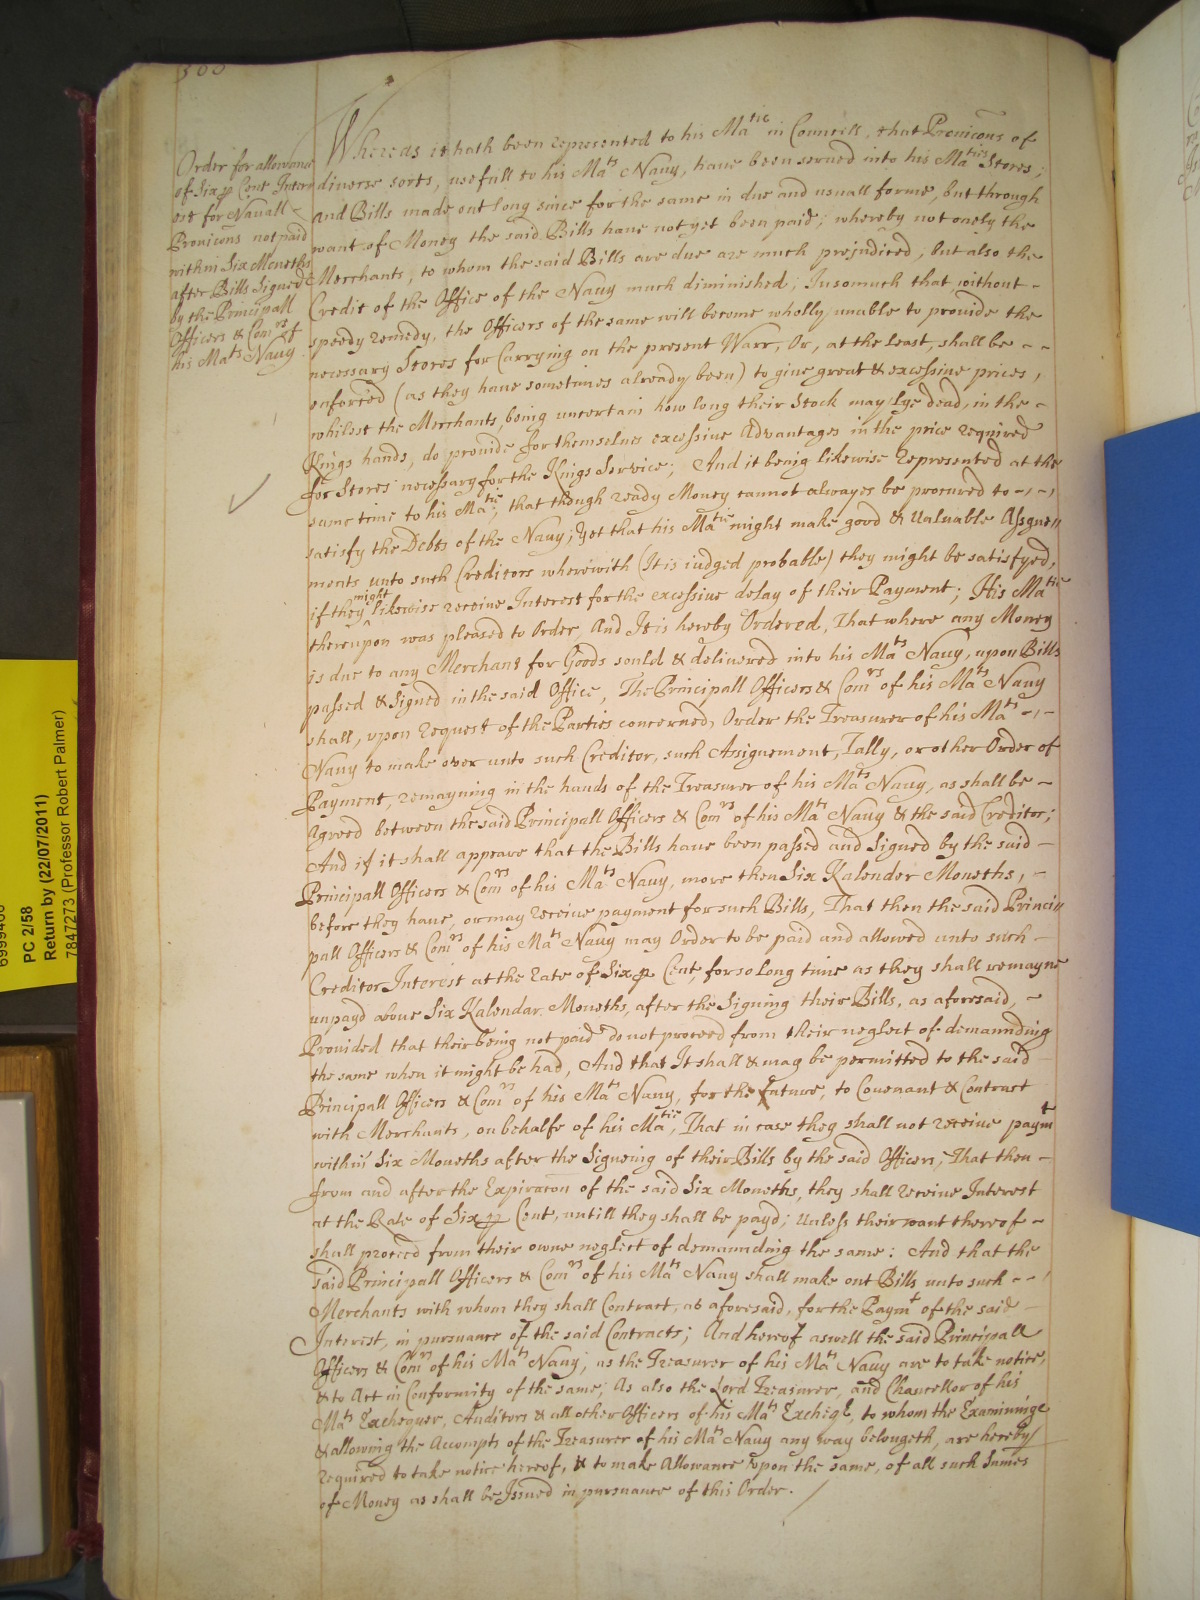 Order for allowance
of Six p Cent Inter
est for Navall -
Provicons not paid
within Six Moneths
after Bills Signed
by the Principall
Officers & Comrs of
his Mats Navy
Whereas it hath been represented to his Matie in Councell, that Provicons of
diverse sorts, usefull to his Mats Navy, have been served into his Maties Stores;
and Bills made out long since for the same in due and usuall forme, but through
want of Money the said Bills have not yet been paid; whereby not onely the
Merchants, to whom the said Bills are due are much prejudiced, but also the
Credit of the Office of the Navy much diminished; Insomuch that, without -
speedy remedy, the Officers of the same will become wholly unable to provide the
necessary Stores for Carrying on the present Warr, Or, at the least, shall be - -
enforced (as they have sometimes already been) to give great & excessive prices,
whilest the Merchants, being uncertain how long their Stock may lye dead, in the -
Kings hands, do provide for themselves excessive Advantages in the price required
for Stores necessary for the Kings Service; And it being likewise represented at the
same time to his Matie, that though ready Money cannot alwayes be procured to - , - ,
satisfy the Debts of the Navy; Yet that his Matie might make good & Valuable Assgne
ments unto such Creditors wherewith (It is iudged probable) they might be satisfyed,
if they might likewise receive Interest for the excessive delay of their Payment; His Matie
thereupon was pleased to Order, And It is hereby Ordered, That where any Money
is due to any Merchant for Goods sould & delivered into his Mats Navy, upon Bills
passed & Signed in the said Office, The Principall Officers & Comrs of his Mats Navy
shall, upon Request of the Parties concerned, Order the Treasurer of his Mats - , -
Navy to make over unto such Creditor, such Assignement, Tally, or other Order of
Payment, remayning in the hands of the Treasurer of his Mats Navy, as shall be -
Agreed between the said Principall Officers & Comrs of his Mats Navy & the said Creditor;
And if it shall appeare that the Bills have been passed and Signed by the said -
Principall Officers & Comrs of his Mats Navy, more then Six Kalender Moneths, -
before they have, or may receive payment for such Bills, That then the said Princi
pall Officers & Comrs of his Mats Navy may Order to be paid and allowed unto such -
Creditor Interest at the Rate of Six p Cent, for so Long time as they shall remayne
unpayd above Six Kalendar Moneths, after the Signing their Bills, as aforesaid, -
Provided that their being not paid do not proceed from their neglect of demaunding
the same when it might be had, And that It shall & may be permitted to the said
Principall Officers & Comrs of his Mats Navy, for the future, to Covenant & Contract
with Merchants, on behalfe of his Matie, That in case they shall not receive paymt
within Six Moneths after the Signeing of their Bills by the said Officers, That then -
from and after the Expiracon of the said Six Moneths, they shall receive Interest
at the Rate of Six p Cent, untill they shall be payd; Unless their want thereof -
shall proceed from their owne neglect of demaunding the same: And that the
said Principall Officers & Comrs of his Mats Navy shall make out Bills unto such - -
Merchants with whom they shall Contract, as aforesaid, for the Paymt of the said -
Interest, in pursuance of the said Contracts; And hereof aswell the said Principall
Officers & Comrs of his Mats Navy, as the Treasurer of his Mats Navy are to take notice,
& to Act in Conformity of the same; As also the Lord Treasurer, and Chancellor of his
Mats Exchequer, Auditors & all other Officers of his Mats Excheqr, to whom the Examininge
& allowing the Accompts of the Treasurer of his Mats Navy any way belongeth, are hereby
required to take notice hereof, & to make Allowance upon the same, of all such Sumes
of Money as shall be Issued in pursuance of this Order.
PC 2/58
Return by (22/07/2011)
7847273 (Professor Robert Palmer)